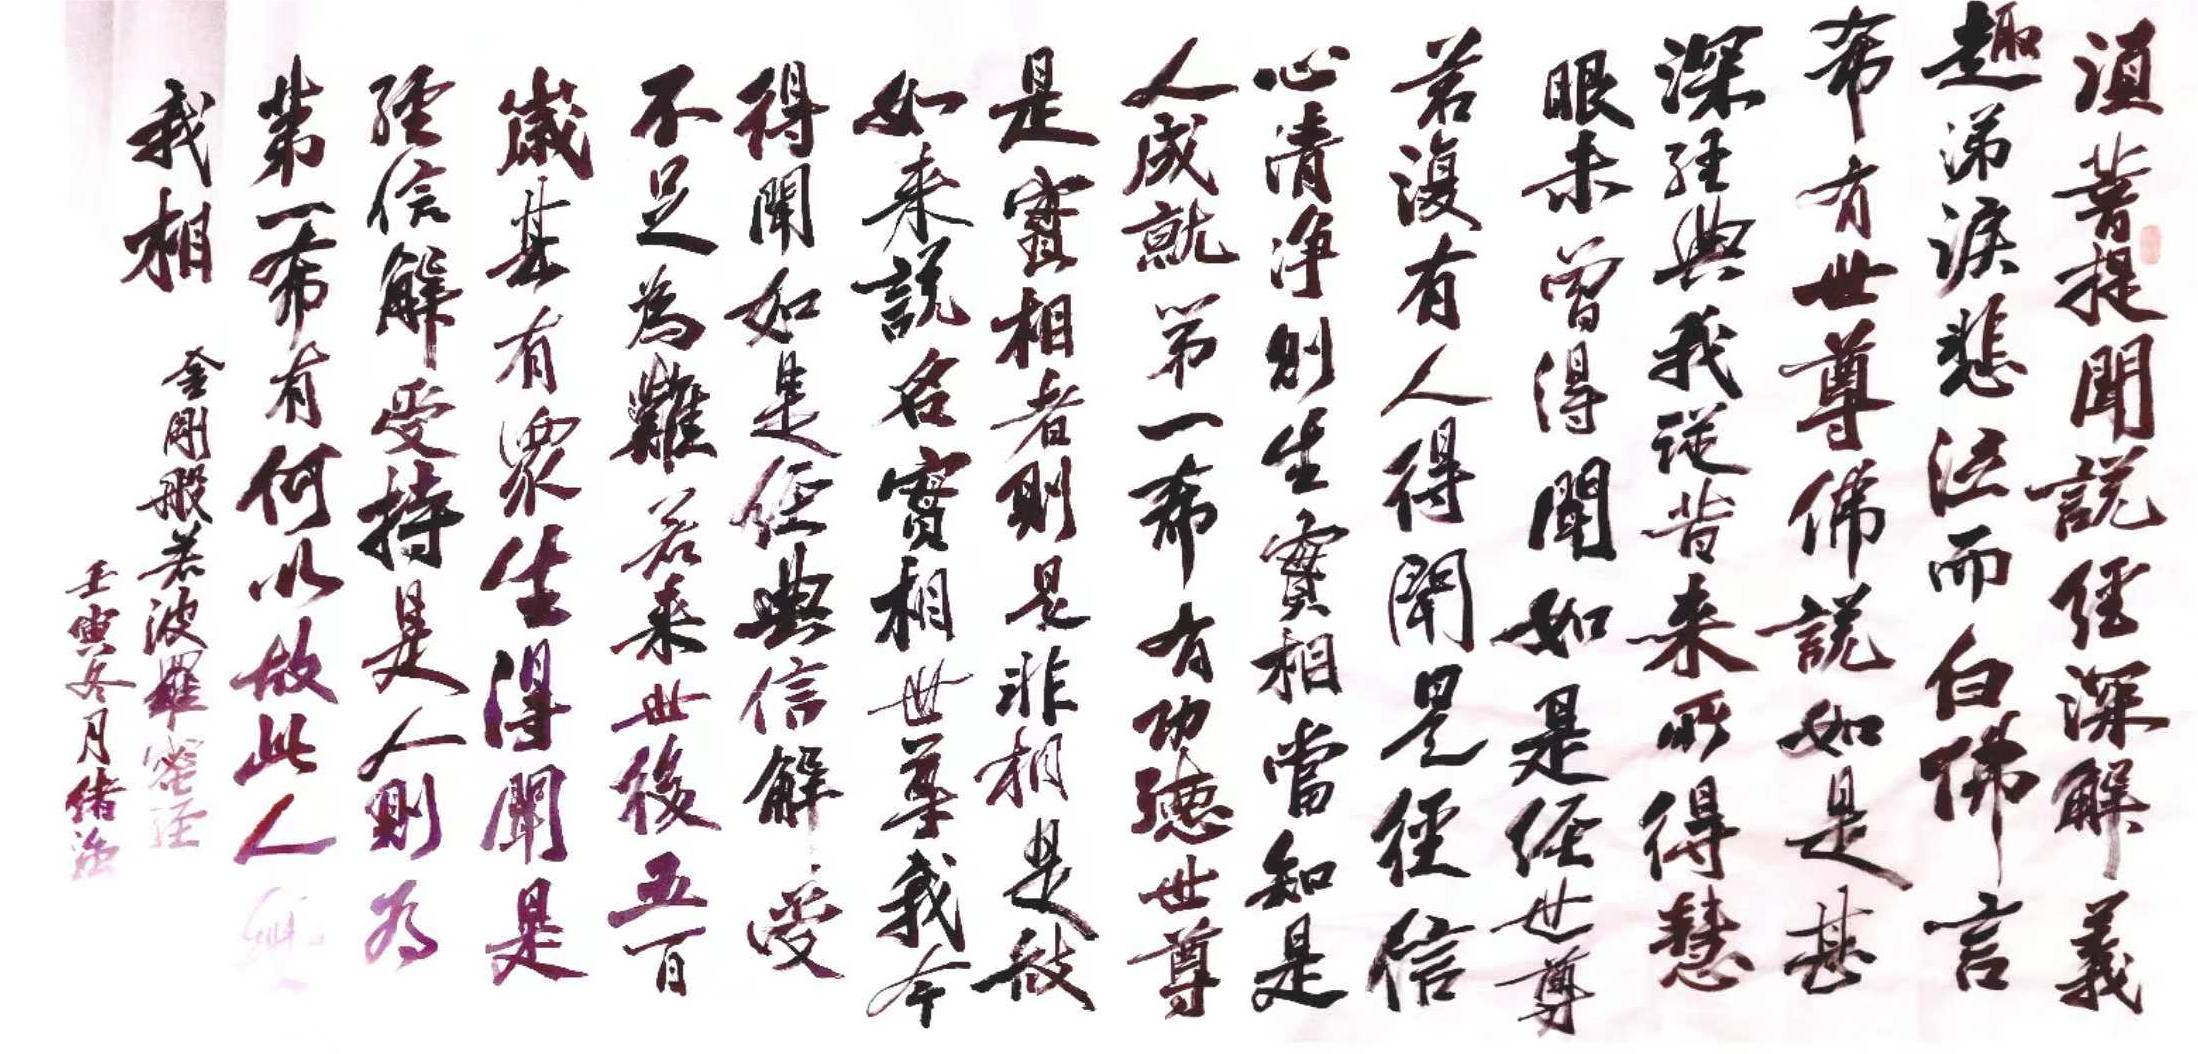 須菩提聞說經深解義
趣涕淚悲泣而白佛言
希有世尊佛說如是甚
深經典我從昔來所得慧
眼未曾得聞如是經世尊
若復有人得聞是經信
心清淨則生實相當知是
人成就第一希有功德世尊
是實相者則是非相是故
如來說名實相世尊我今
得聞如是經典信解受
不足為難若來世後五百
歲其有眾生得聞是
經信解受持是人則為
第一希有何以故此人無
我相
金剛般若波羅蜜經
壬寅冬月緒